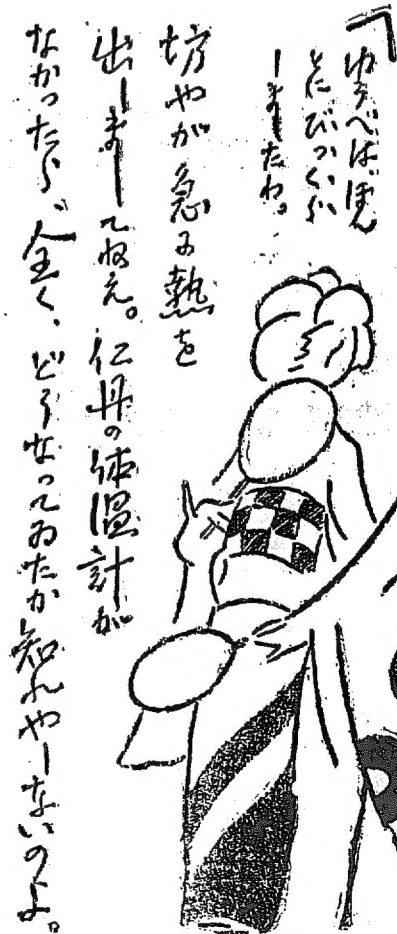 「ゆうべはほん
とにびつくり
しましたわ。
坊やが急に熱を
出しましてねえ。仁丹の体温計が
なかつたら、全く、どうなつてゐたか知れやしないのよ。